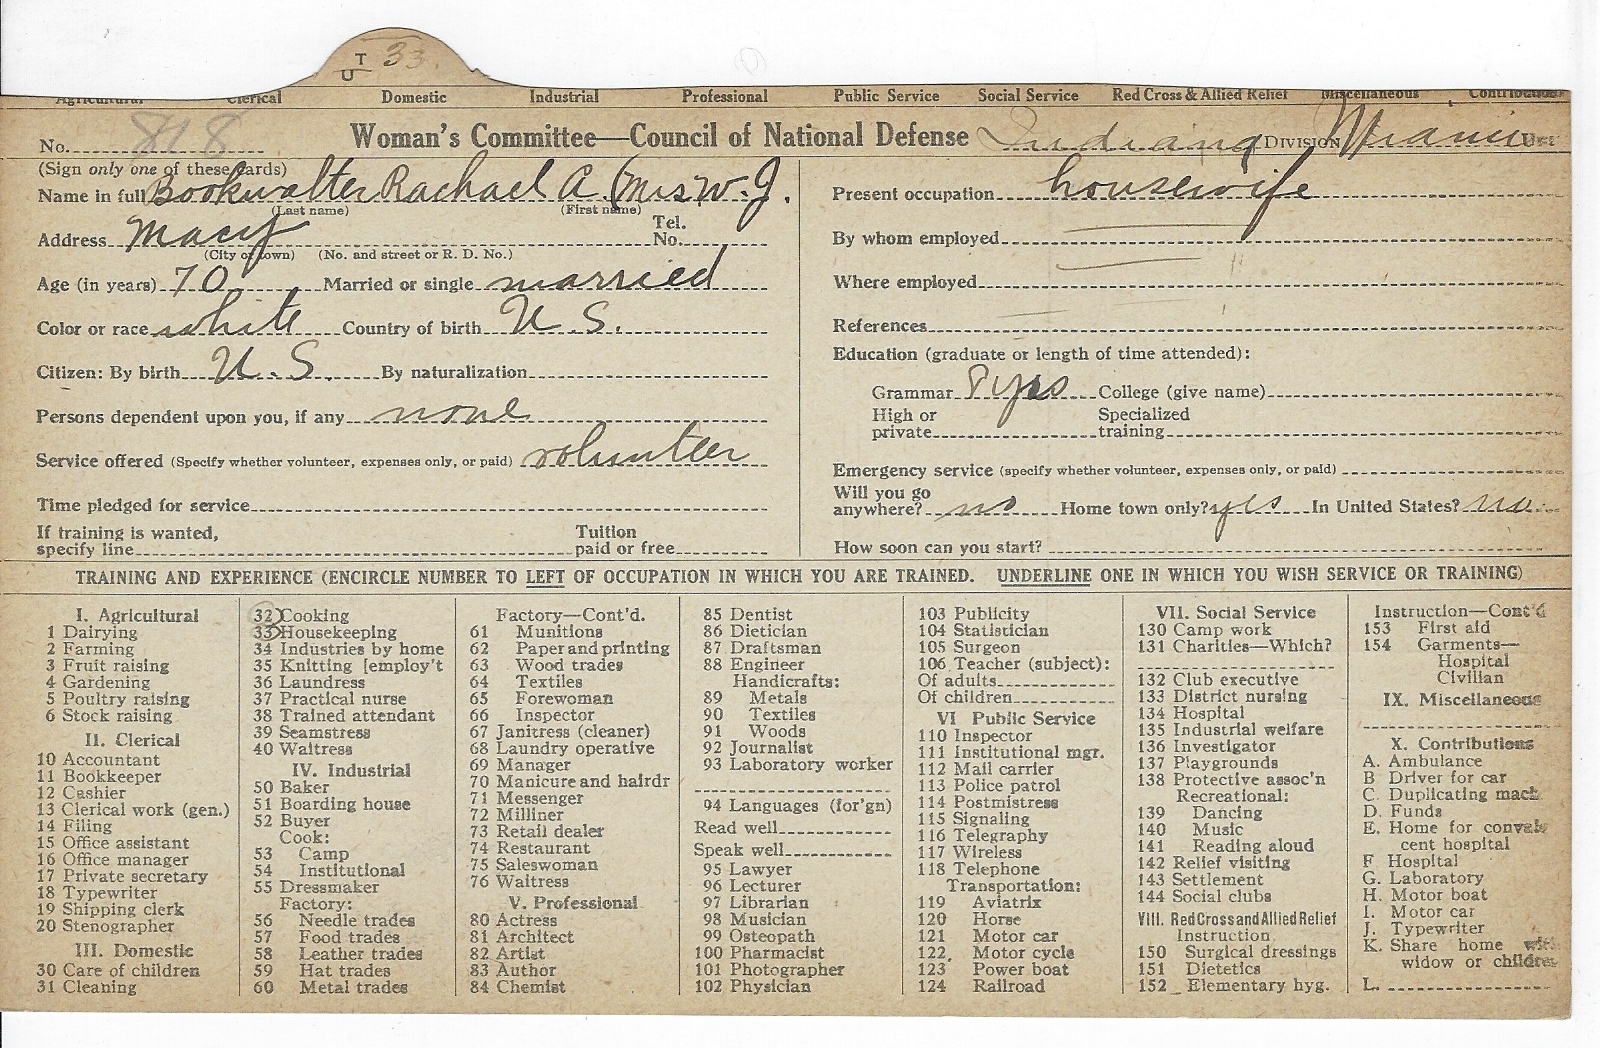 T
U 33.
Agricultural Clerical Domestic Industrial Professional Public Service Social Service Red Cross & Allied Relief Miscellaneous Contributions
No. 818 Woman's Committee—Council of National Defense Indiana DIVISION Miami UNIT
(Sign only one of these cards)
Name in full Bookwalter Rachael A. (Mrs W. J.
(Last name) (First name)
Address Macy Tel. No.
(City or town) (No. and street or R. D. No.)
Age (in years) 70 Married or single married
Color or race white Country of birth U. S.
Citizen: By birth U. S. By naturalization
Persons dependent upon you, if any none
Service offered (Specify whether volunteer, expenses only, or paid) volunteer
Time pledged for service
If training is wanted, specify line Tuition paid or free
Present occupation housewife
By whom employed
Where employed
References
Education (graduate or length of time attended):
Grammar 8 yrs College (give name)
High or private Specialized training
Emergency service (specify whether volunteer, expenses only, or paid)
Will you go anywhere? no Home town only? yes In United States? no
How soon can you start?
TRAINING AND EXPERIENCE (ENCIRCLE NUMBER TO LEFT OF OCCUPATION IN WHICH YOU ARE TRAINED. UNDERLINE ONE IN WHICH YOU WISH SERVICE OR TRAINING)
I. Agricultural
1 Dairying
2 Farming
3 Fruit raising
4 Gardening
5 Poultry raising
6 Stock raising
II. Clerical
10 Accountant
11 Bookkeeper
12 Cashier
13 Clerical work (gen.)
14 Filing
15 Office assistant
16 Office manager
17 Private secretary
18 Typewriter
19 Shipping clerk
20 Stenographer
III. Domestic
30 Care of children
31 Cleaning
32 Cooking
33 Housekeeping
34 Industries by home
35 Knitting [employ't
36 Laundress
37 Practical nurse
38 Trained attendant
39 Seamstress
40 Waitress
IV. Industrial
50 Baker
51 Boarding house
52 Buyer
Cook:
53 Camp
54 Institutional
55 Dressmaker
Factory:
56 Needle trades
57 Food trades
58 Leather trades
59 Hat trades
60 Metal trades
Factory—Cont'd.
61 Munitions
62 Paper and printing
63 Wood trades
64 Textiles
65 Forewoman
66 Inspector
67 Janitress (cleaner)
68 Laundry operative
69 Manager
70 Manicure and hairdr
71 Messenger
72 Milliner
73 Retail dealer
74 Restaurant
75 Saleswoman
76 Waitress
V. Professional
80 Actress
81 Architect
82 Artist
83 Author
84 Chemist
85 Dentist
86 Dietician
87 Draftsman
88 Engineer
Handicrafts:
89 Metals
90 Textiles
91 Woods
92 Journalist
93 Laboratory worker
94 Languages (for'gn)
Read well
Speak well
95 Lawyer
96 Lecturer
97 Librarian
98 Musician
99 Osteopath
100 Pharmacist
101 Photographer
102 Physician
103 Publicity
104 Statistician
105 Surgeon
106 Teacher (subject):
Of adults
Of children
VI Public Service
110 Inspector
111 Institutional mgr.
112 Mail carrier
113 Police patrol
114 Postmistress
115 Signaling
116 Telegraphy
117 Wireless
118 Telephone
Transportation:
119 Aviatrix
120 Horse
121 Motor car
122. Motor cycle
123 Power boat
124 Railroad
VII. Social Service
130 Camp work
131 Charities—Which?
132 Club executive
133 District nursing
134 Hospital
135 Industrial welfare
136 Investigator
137 Playgrounds
138 Protective assoc'n
Recreational:
139 Dancing
140 Music
141 Reading aloud
142 Relief visiting
143 Settlement
144 Social clubs
VIII. Red Cross and Allied Relief
Instruction
150 Surgical dressings
151 Dietetics
152 Elementary hyg.
Instruction—Cont'd
153 First aid
154 Garments—
Hospital
Civilian
IX. Miscellaneous
X. Contributions
A. Ambulance
B Driver for car
C. Duplicating mach
D. Funds
E. Home for convales
cent hospital
F Hospital
G. Laboratory
H. Motor boat
I. Motor car
J. Typewriter
K. Share home with
widow or children
L.